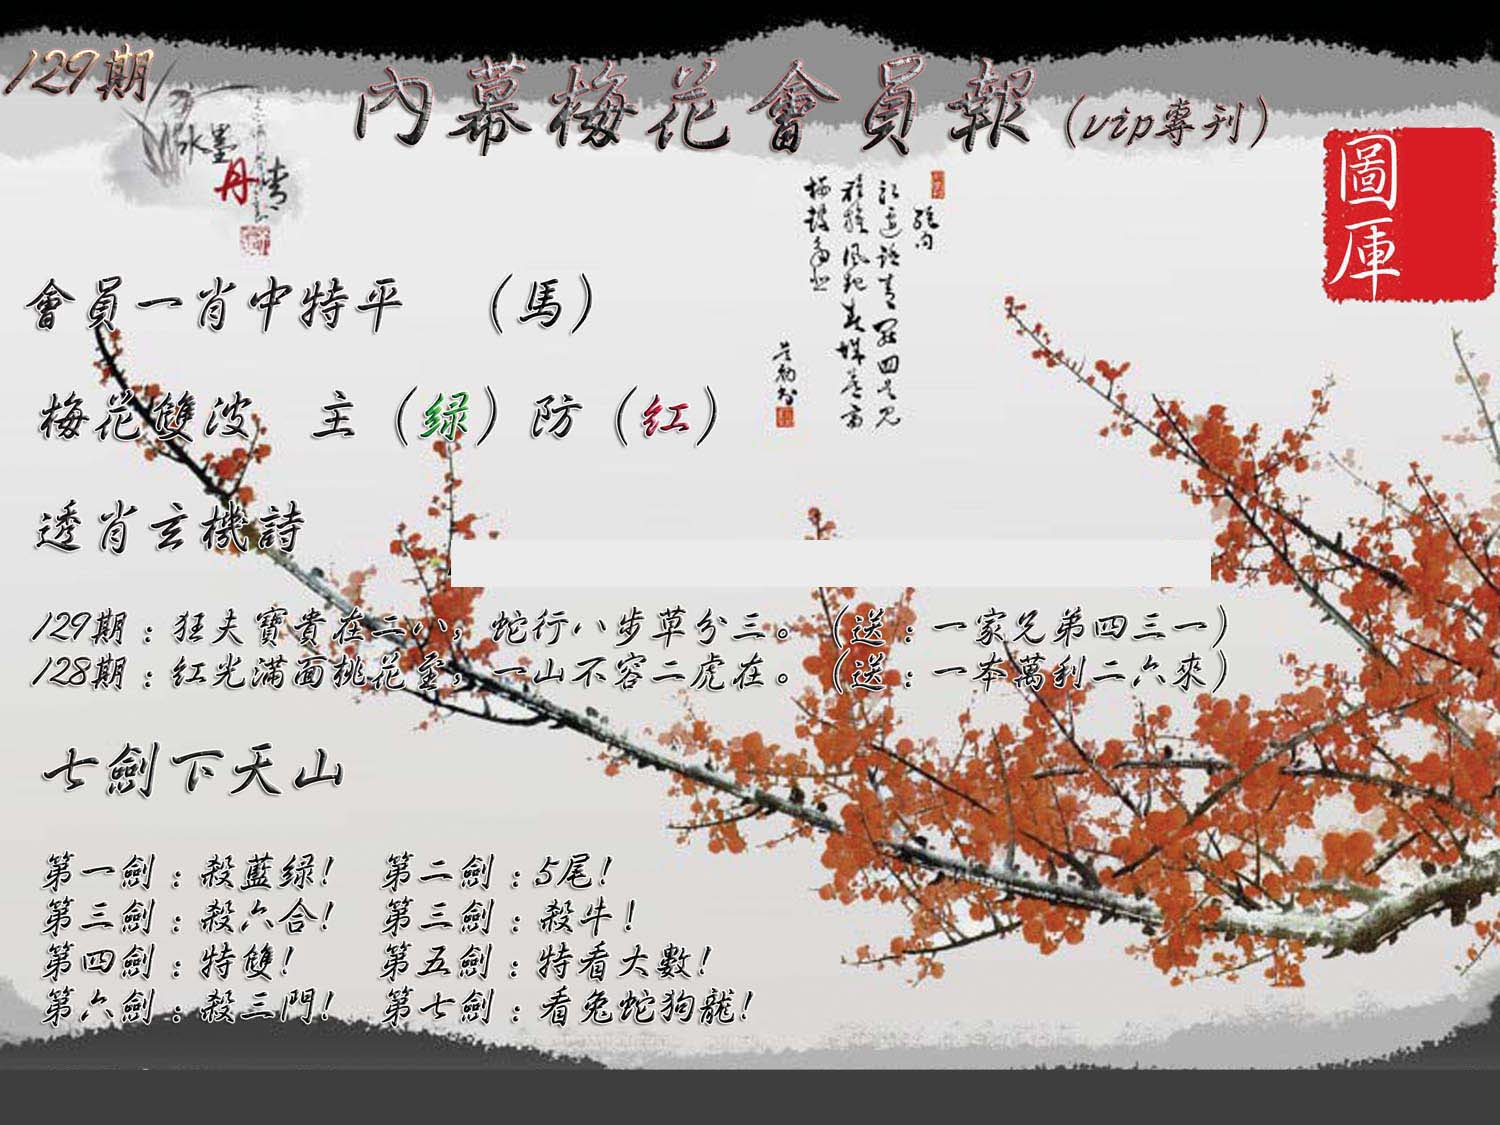 129期
內幕梅花會員報(vip專刊)
水墨
丹青
圖
庫
會員一肖中特平 (馬)
梅花雙波 主(绿)防(红)
透肖玄機詩
129期:狂夫寶貴在二八,蛇行八步草分三。(送:一家兄弟四三一)
128期:紅光滿面桃花至,一山不容二虎在。(送:一本萬利二六來)
七劍下天山
第一劍:殺藍绿! 第二劍:5尾!
第三劍:殺六合! 第三劍:殺牛!
第四劍:特雙! 第五劍:特看大數!
第六劍:殺三門! 第七劍:看兔蛇狗龍!